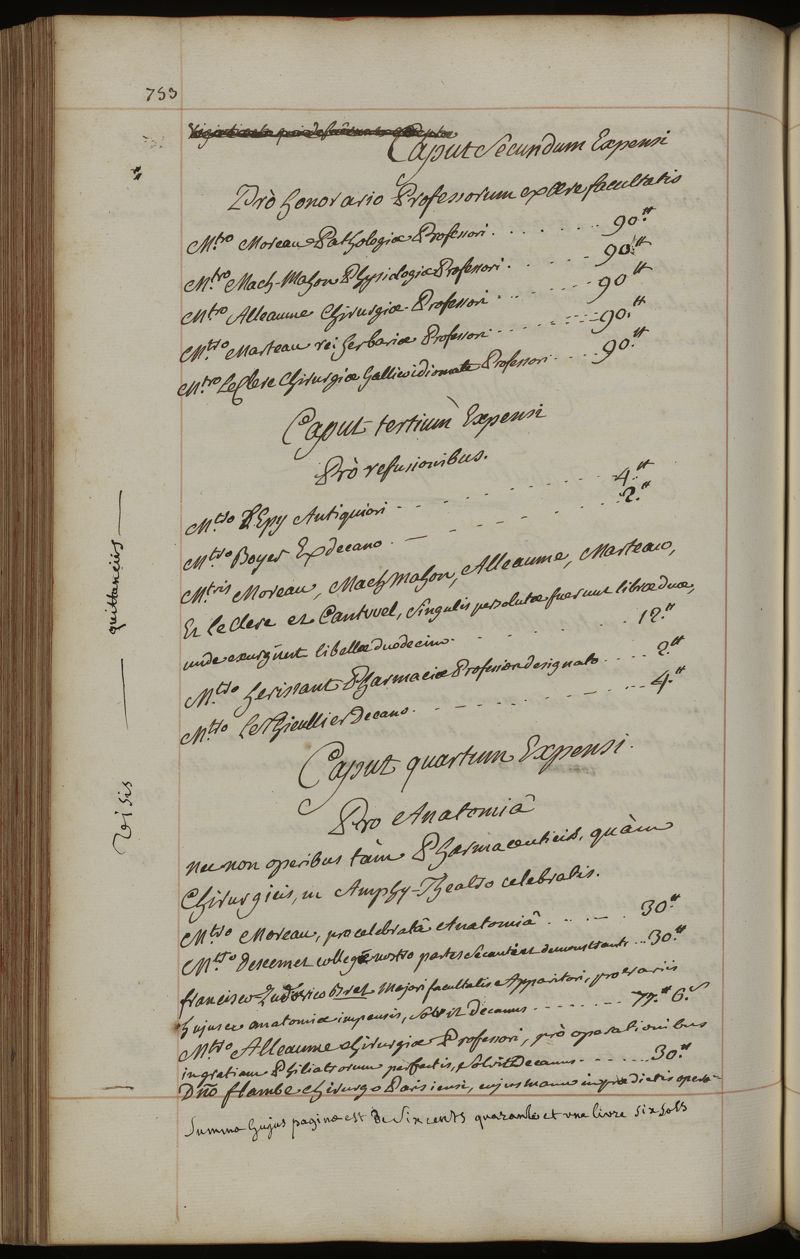 753
Caput Secundum Expensi
Prò honorario Professorum ex ære facultatis
M.tro Moreau Pathologiæ Professori . . . . . . . 90.tt
M.tro Mach-Mahon Physiologiæ Professori . . . . . . 90.tt
M.tro Alleaume Chirurgiæ Professori . . . . . . . 90.tt
M.tro Marteau rei herbariæ Professori . . . . . . . 90.tt
M.tro Le Clerc Chirurgiæ Gallico idiomate Professori . . . . 90.tt
Caput tertium Expensi
Prò refusionibus.
M.tro L'Epy Antiquiori . . . . . . . 4.tt
M.tro Boyer Exdecano . . . . . . . 2.tt
M.tris Moreau, Mach-mahon, Alleaume, Marteau,
Et Le Clerc et Cantvvel, singulis persolutæ fuerunt libræ duæ,
unde exurgunt libellæ duodecim . . . . . . . 12.tt
M.tro herissant Pharmaciæ Professori designato . . . . 2.tt
M.tro Le Thieullier Decano . . . . . . . 4.tt
Caput quartum Expensi.
Pro Anatomiâ
nec non operibus tàm Pharmaceuticis, quàm
Chirurgicis, in Amphy-Theatro celebratis.
M.tro Moreau, pro celebratâ Anatomiâ . . . . . 30.tt
M.tro Descemet collegæ nostro partes secanti et demonstranti . . . 30.tt
francisco Ludovico Bret Majori facultatis Apparitori, pro variis
hujusce anatomiæ impensis, solvit Decanus . . . . . . . 77.tt 6.s
M.tro Alleaume chirurgiæ Professori, prò operationibus
in gratiam Philiatrorum perfectis, solvit Decanus . . . . . . 30.tt
D.no flambe chirurgo Parisiensi, cujus manu in prædictis opera-
Summa hujus paginæ est de Six cents quarante et une livre six sols
Visis — quittanciis —